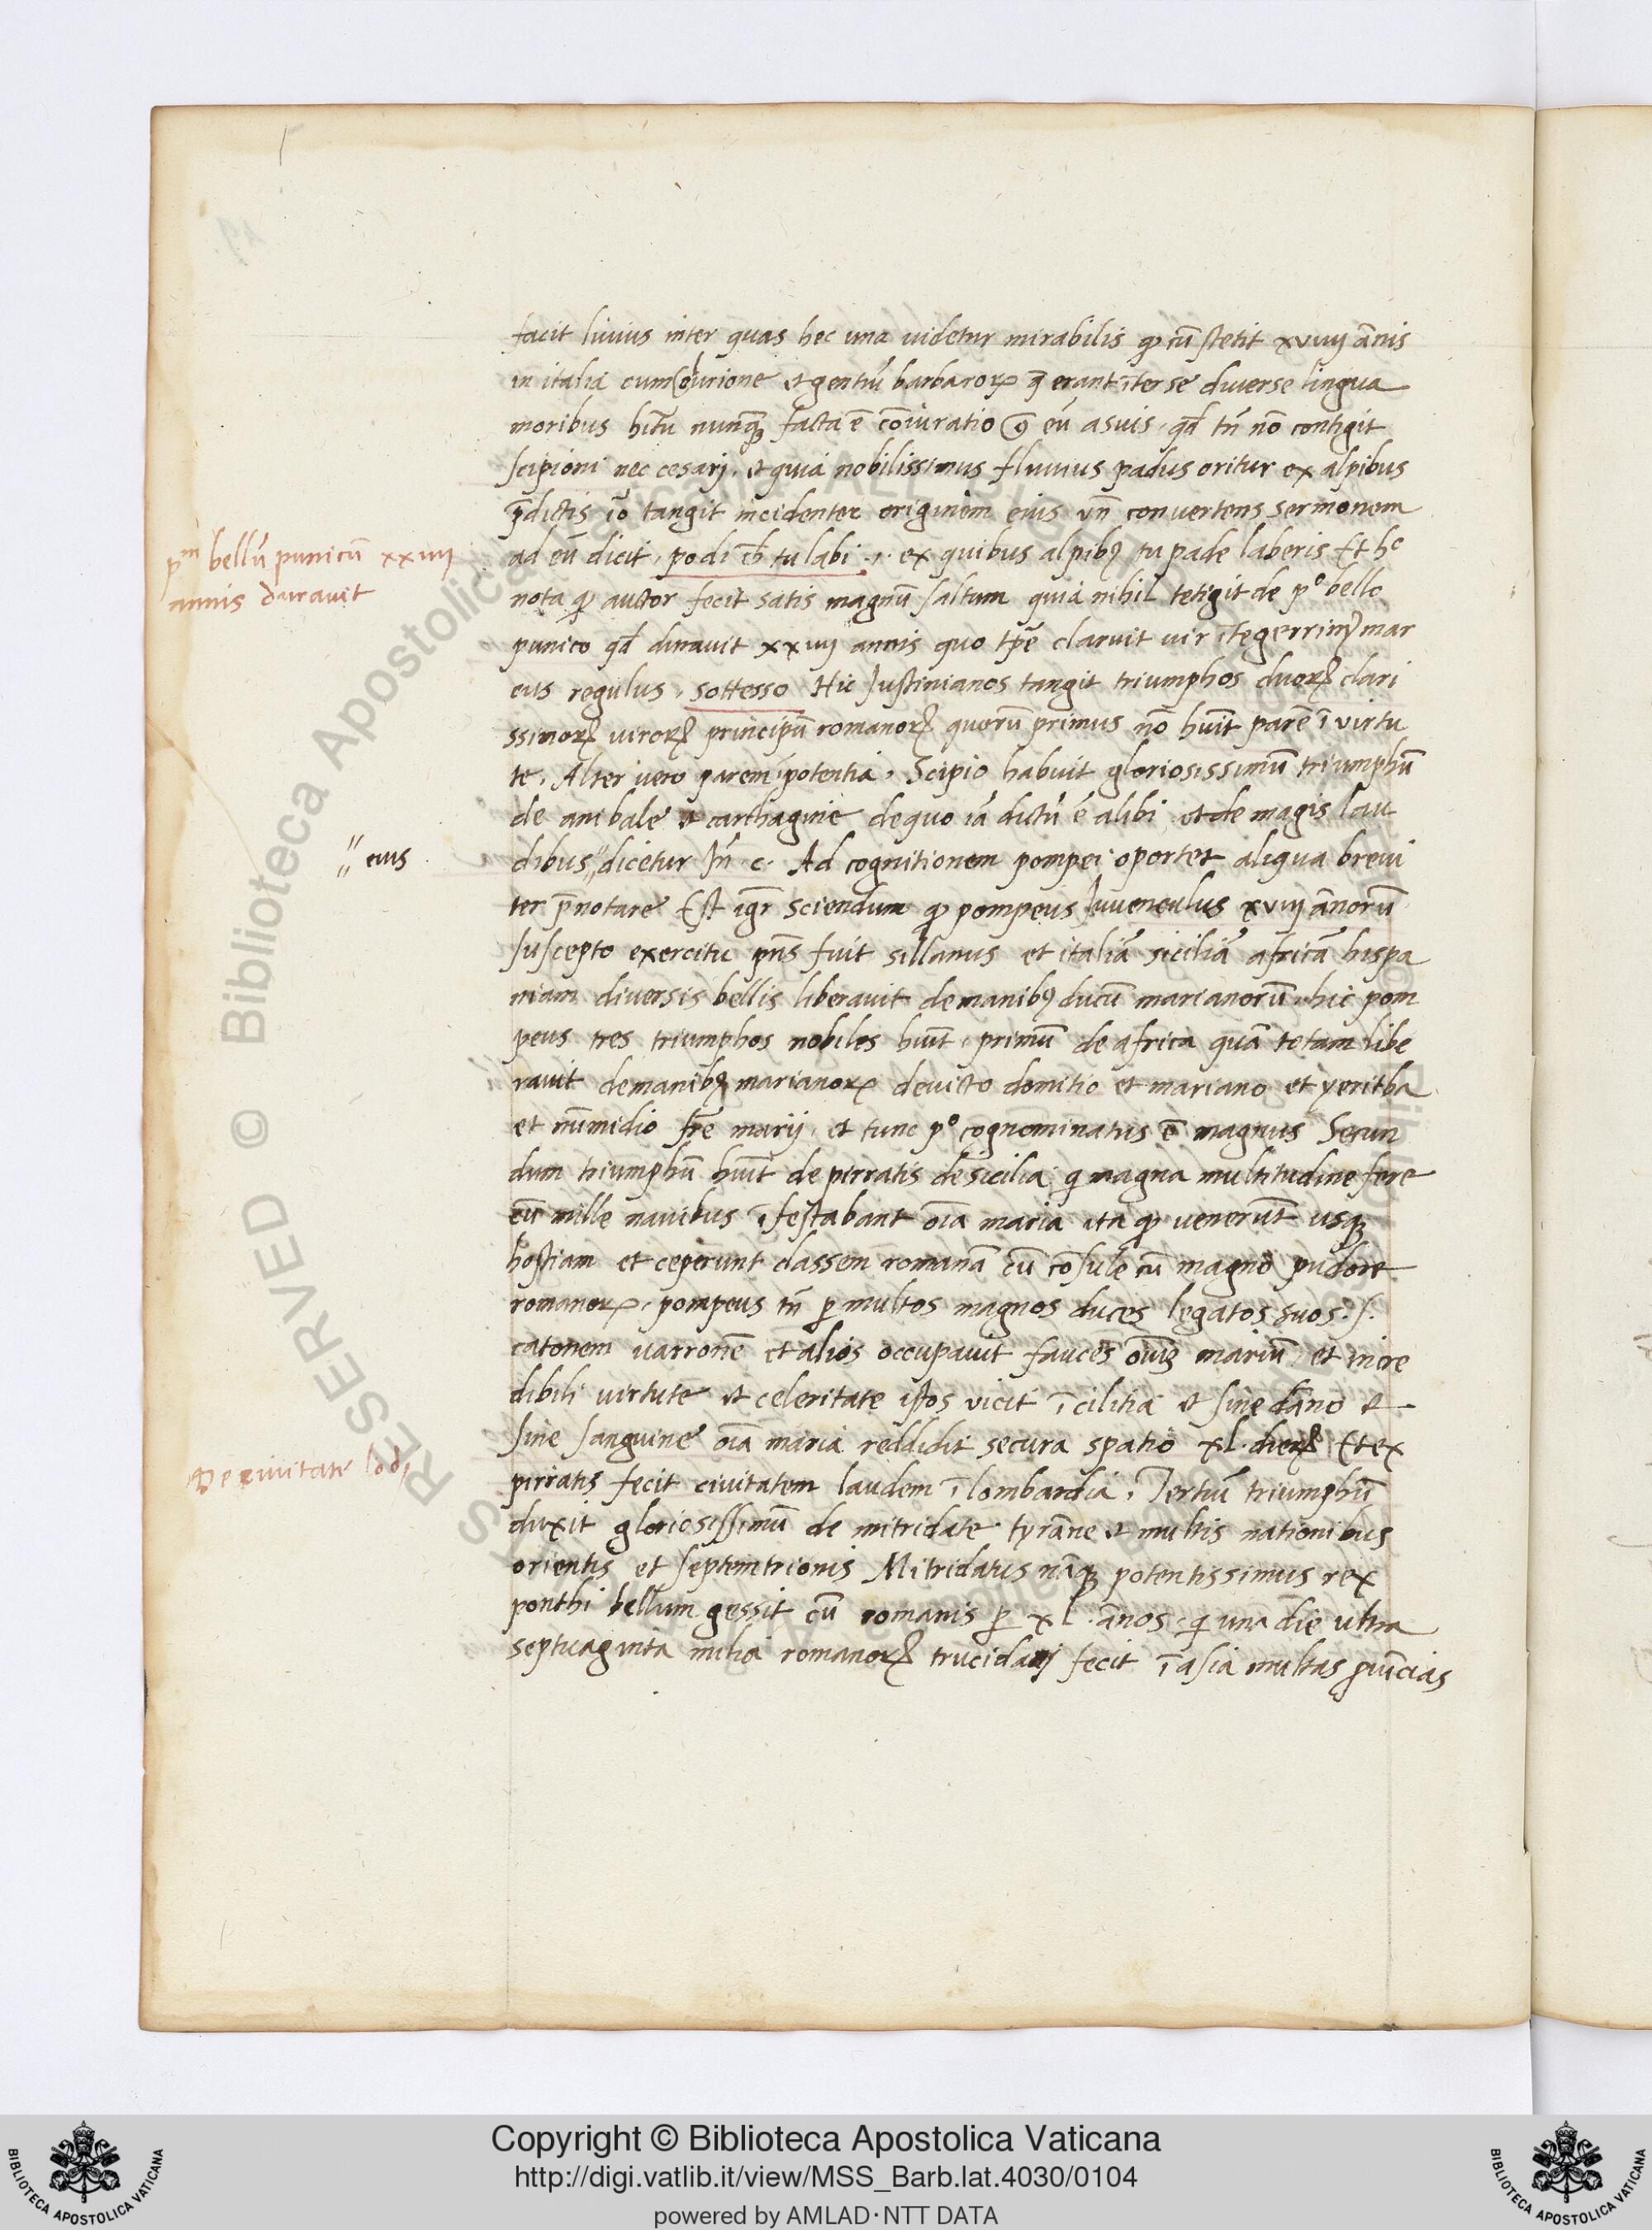 facit liuius inter quas hec una uidetur mirabilis ꝙ cū stetit xviiij ānis
in italia cum et gentiū barbaroꝝ q̄ erant īter se diverse lingua
moribus nunꝗ facta ē cōiuratio ꝯ eū a suis, qd̄ tn̄ nō contigit
scipioni nec cesarj. et quia nobilissimus fluuius padus oritur ex alpibus
p̄dictis iō tangit incidenter originem eius vn̄ convertens sermonem
ad eū dicit, po di ch̄ tu labi ·,· ex quibus alpibꝰ tu pade laberis Et hᶜ
nota ꝙ auctor fecit satis magnū saltum quia nihil tetigit de pº bello
punico qd̄ duravit xxiiij annis quo tp̄e claruit vir ītegerrimꝰ mar
cus regulus, sottesso Hic Justinianos tangit triumphos duoꝝ clari
ssimoꝝ viroꝝ principū romanoꝝ quorū primus nō huit parē ī virtu
te, Alter vero parem ī potentia, Scipio habuit gloriosissimū triumphū
de anibale et carthagine de quo iā dictū ē alibi et de magis lau
dibus" dicetur Jn̄ c. Ad cognitionem pompei oportet aliqua brevi
ter p̄notare Est igr̄ sciendum ꝙ pompeus Juvenculus xviij ānorū
suscepto exercitu pn̄s fuit sillanus et italiā siciliā africā hispa
niam diversis bellis liberavit de manibꝰ ducū marianorū. hic pom
peus tres triumphos nobiles huit, primū de africa quā totam libe
ravit de manibꝰ marianoꝝ devicto domitio et mariano et yeritba
et nūmidio fr̄e marij, et tunc pº cognominatus ē magnus Secun
dum triumphū huit de pirratis de sicilia qi magna multitudine fere
cū mille navibus īfestabant oīa maria ita ꝙ venerūt usqꝫ
hostiam et ceperunt classem romanā cū cōsule cū magno pudore
romanoꝝ. pompeus tn̄ ꝑ multos magnos duces legatos suos .s.
catonem varronē et alios occupavit fauces oīuꝫ mariū et incre
dibili virtute et celeritate istos vicit ī cilitia et sine dāno et
sine sanguine oīa maria reddidit secura spatio xl. dieꝝ Et ex
pirratis fecit civitatem laudem ī lombardia, Tertiū triumphū
duxit gloriosissimū de mitridate tyrāne et multis nationibus
orientis et septemtrionis Mitridatus nāqꝫ potentissimus rex
ponthi bellum gessit cū romanis ꝑ xl. ānos, qi una die ultra
septuaginta milia romanoꝝ trucidarj fecit ī asia multas ꝓuīcias
pᵐ bellū punicū xxiiij
annis duravit
" eius
De civitate lodi
RESERVED © Biblioteca Apostolica Vaticana
Copyright © Biblioteca Apostolica Vaticana
http://digi.vatlib.it/view/MSS_Barb.lat.4030/0104
powered by AMLAD·NTT DATA
BIBLIOTECA APOSTOLICA VATICANA
BIBLIOTECA APOSTOLICA VATICANA